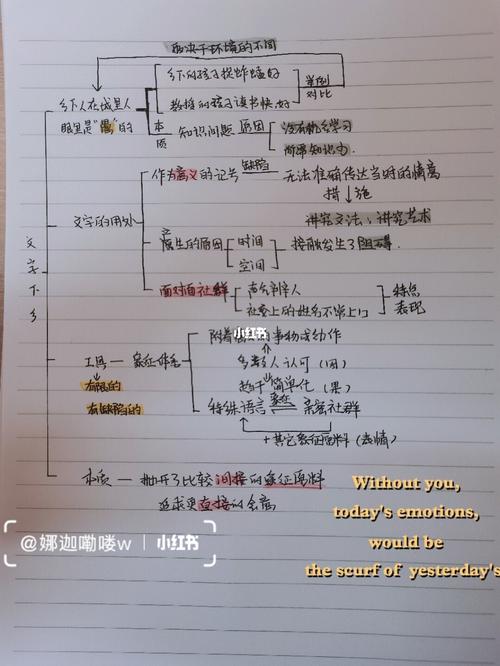 取决于环境的不同
乡下的孩子捉蚱蜢好
教授的孩子读书快、好
举例
对比
乡下人在城里人
眼里是“愚”的
本质
知识问题
原因
没有机会学习
所需知识
作为意义的记号
缺陷
无法准确传达当时的情高
措施
讲究文法,讲究艺术
文字的用处
发生的原因
时间
空间
接触发生了阻碍.
面对面社群
声气辨人
社交上的姓名不常上门
特点
表现
文字下乡
小红书
附着
的事物或动作
多数人认可(因)
趋于简单化(果)
工具 — 象征体系
有限的
有缺陷的
特殊语言
亲密社群
+其它象征原料(表情)
本质 — 抛开了比较间接的象征原料
追求更直接的会意
Without you,
today's emotions,
would be
the scurf of yesterday's
@娜迦嘞喽w
小红书